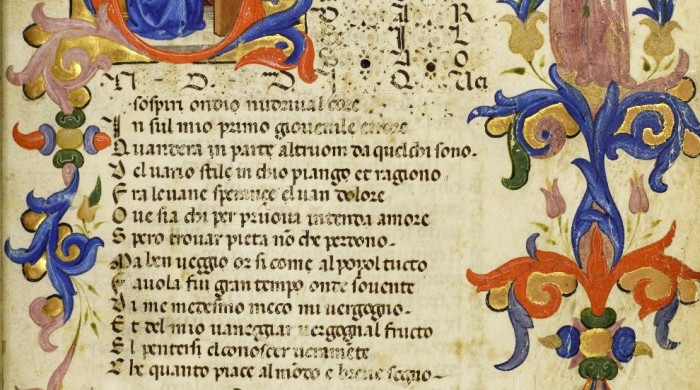 A R
I L
I O
Q Uei
N D D I
sospiri ondio nudriual core
In sul mio primo giouenile errore
Quandera in parte altruom da quelchi sono.
Del uario stile in chio piango et ragiono
Fra leuane sperançe el uan dolore
Oue sia chi per pruoua intenda amore
Spero trouar pieta nõ che perdono.
Ma ben ueggio or si come al popol tucto
Fauola fui gran tempo onde souente
Di me medesmo meco mi uergogno.
Et del mio uaneggiar uergogna el fructo
El pentersi el conoscer ueramẽte
Che quanto piace al mõdo e breue sogno.